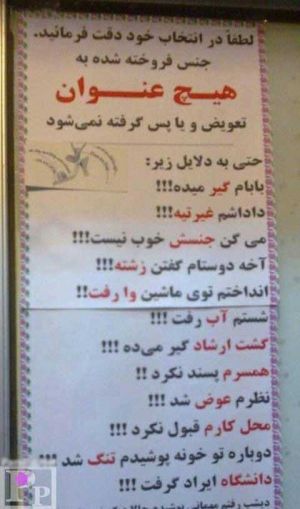 لطفاً در انتخاب خود دقت فرمائید.
جنس فروخته شده به
هیچ عنوان
تعویض و یا پس گرفته نمی‌شود
حتی به دلایل زیر:
بابام گیر میده!!!
داداشم غیرتیه!!!
می گن جنسش خوب نیست!!!
آخه دوستام گفتن زشته!!!
انداختم توی ماشین وا رفت!!
شستم آب رفت !!!
گشت ارشاد گیر می‌ده !!!
همسرم پسند نکرد !!
نظرم عوض شد !!!
محل کارم قبول نکرد !!!
دوباره تو خونه پوشیدم تنگ شد !!!
دانشگاه ایراد گرفت !!!
دیشب رفتم مهمانی پوشیدم